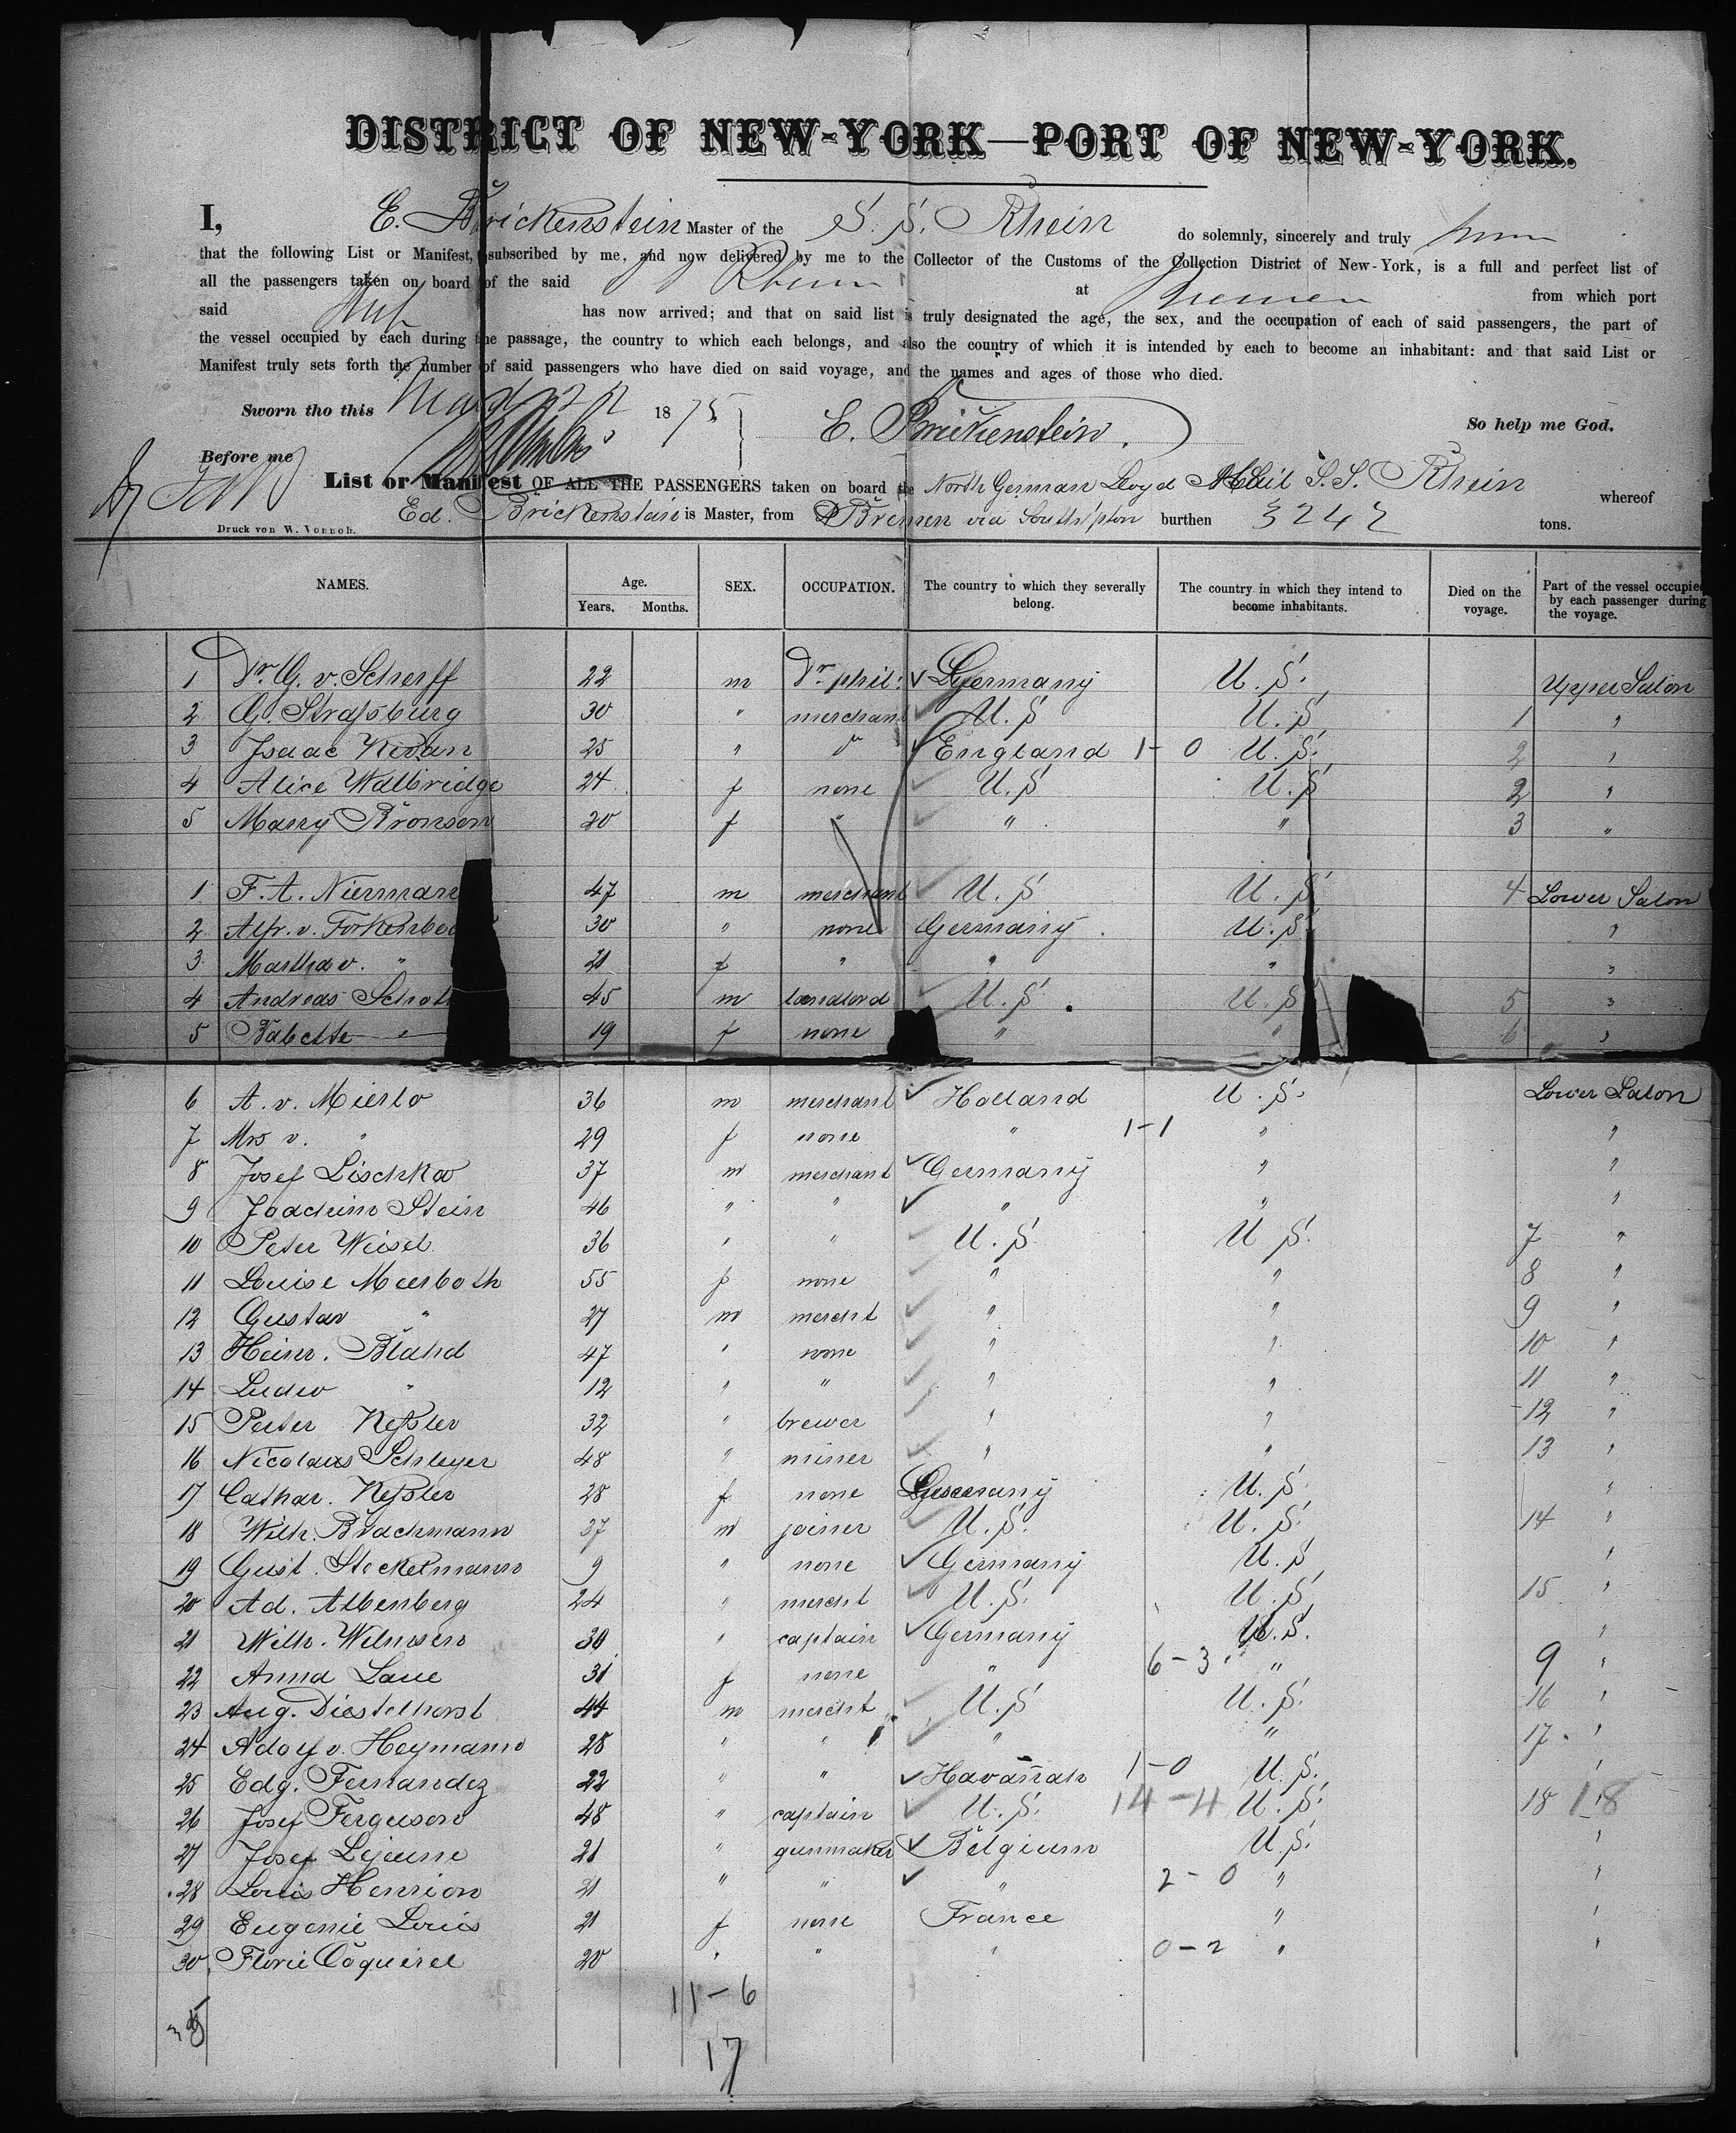 DISTRICT OF NEW-YORK—PORT OF NEW-YORK.
I, E. Brickenstein Master of the S. S. Rhein do solemnly, sincerely and truly
that the following List or Manifest, subscribed by me, and now delivered by me to the Collector of the Customs of the Collection District of New-York, is a full and perfect list of
all the passengers taken on board of the said Rhein at Bremen from which port
said has now arrived; and that on said list is truly designated the age, the sex, and the occupation of each of said passengers, the part of
the vessel occupied by each during the passage, the country to which each belongs, and also the country of which it is intended by each to become an inhabitant: and that said List or
Manifest truly sets forth the number of said passengers who have died on said voyage, and the names and ages of those who died.
Sworn tho this 1875 E. Brickenstein. So help me God.
Before me
List or Manifest OF ALL THE PASSENGERS taken on board the North German Lloyd Mail S.S. Rhein whereof
Ed. Brickenstein is Master, from Bremen via South'pton burthen 3242 tons.
Druck von W. Vonnoh.
NAMES. Age. Years. Months. SEX. OCCUPATION. The country to which they severally belong. The country in which they intend to become inhabitants. Died on the voyage. Part of the vessel occupied by each passenger during the voyage.
1 Dr. G. v. Scherff 22 m Dr. phil: Germany U.S. Upper Salon
2 G. Straſsburg 30 " merchant U.S U.S 1 "
3 Isaac Kevan 25 " do England 1-0 U.S. 2 "
4 Alice Walbridge 24 f none U.S U.S 2 "
5 Mary Bronson 20 f " " " 3 "
1 F. A. Nierman 47 m merchant U.S U.S 4 Lower Salon
2 Alfr. v. Forkenbe 30 " none Germany U.S "
3 Martha v. " 21 f " " " "
4 Andreas Schot 45 m landlord U.S. U.S 5 "
5 Babette " 19 f none " " 6 "
6 A. v. Mierlo 36 m merchant Holland U.S. Lower Salon
7 Mrs v. " 29 f none " 1-1 " "
8 Josef Lischka 37 m merchant Germany " "
9 Joachim Stein 46 " " " " "
10 Peter Weisel 36 " " U.S. U.S. 7 "
11 Louise Meerboth 55 f none " " 8 "
12 Gustav " 27 m mercht " " 9 "
13 Heinr. Bland 47 " none " " 10 "
14 Ludw " 12 " " " " 11 "
15 Peter Keſsler 32 " brewer " " 12 "
16 Nicolaus Schleyer 48 " miner " " 13 "
17 Cathar. Keſsler 28 f none Germany U.S. "
18 Wilh. Brachmann 37 m joiner U.S. U.S. 14 "
19 Gust. Steckelmann 9 " none Germany U.S "
20 Ad. Altenberg 24 " mercht U.S. U.S. 15 "
21 Wilh. Wilmsen 30 " captain Germany U.S. "
22 Anna Laue 31 f none " 6-3 " 9 "
23 Aug. Diestelhorst 44 m mercht U.S U.S. 16 "
24 Adolf v. Heymann 28 " " " " 17 "
25 Edg. Fernandez 22 " " Havannah 1-0 U.S. "
26 Josef Ferguson 48 " captain U.S. 14-4 U.S. 18 18
27 Josef Lejeune 21 " gunmaker Belgium U.S. "
28 Louis Henrion 21 " " " 2-0 " "
29 Eugenie Louis 21 f none France " "
30 Florie Coquerel 20 " " " 0-2 " "
11-6
35
17